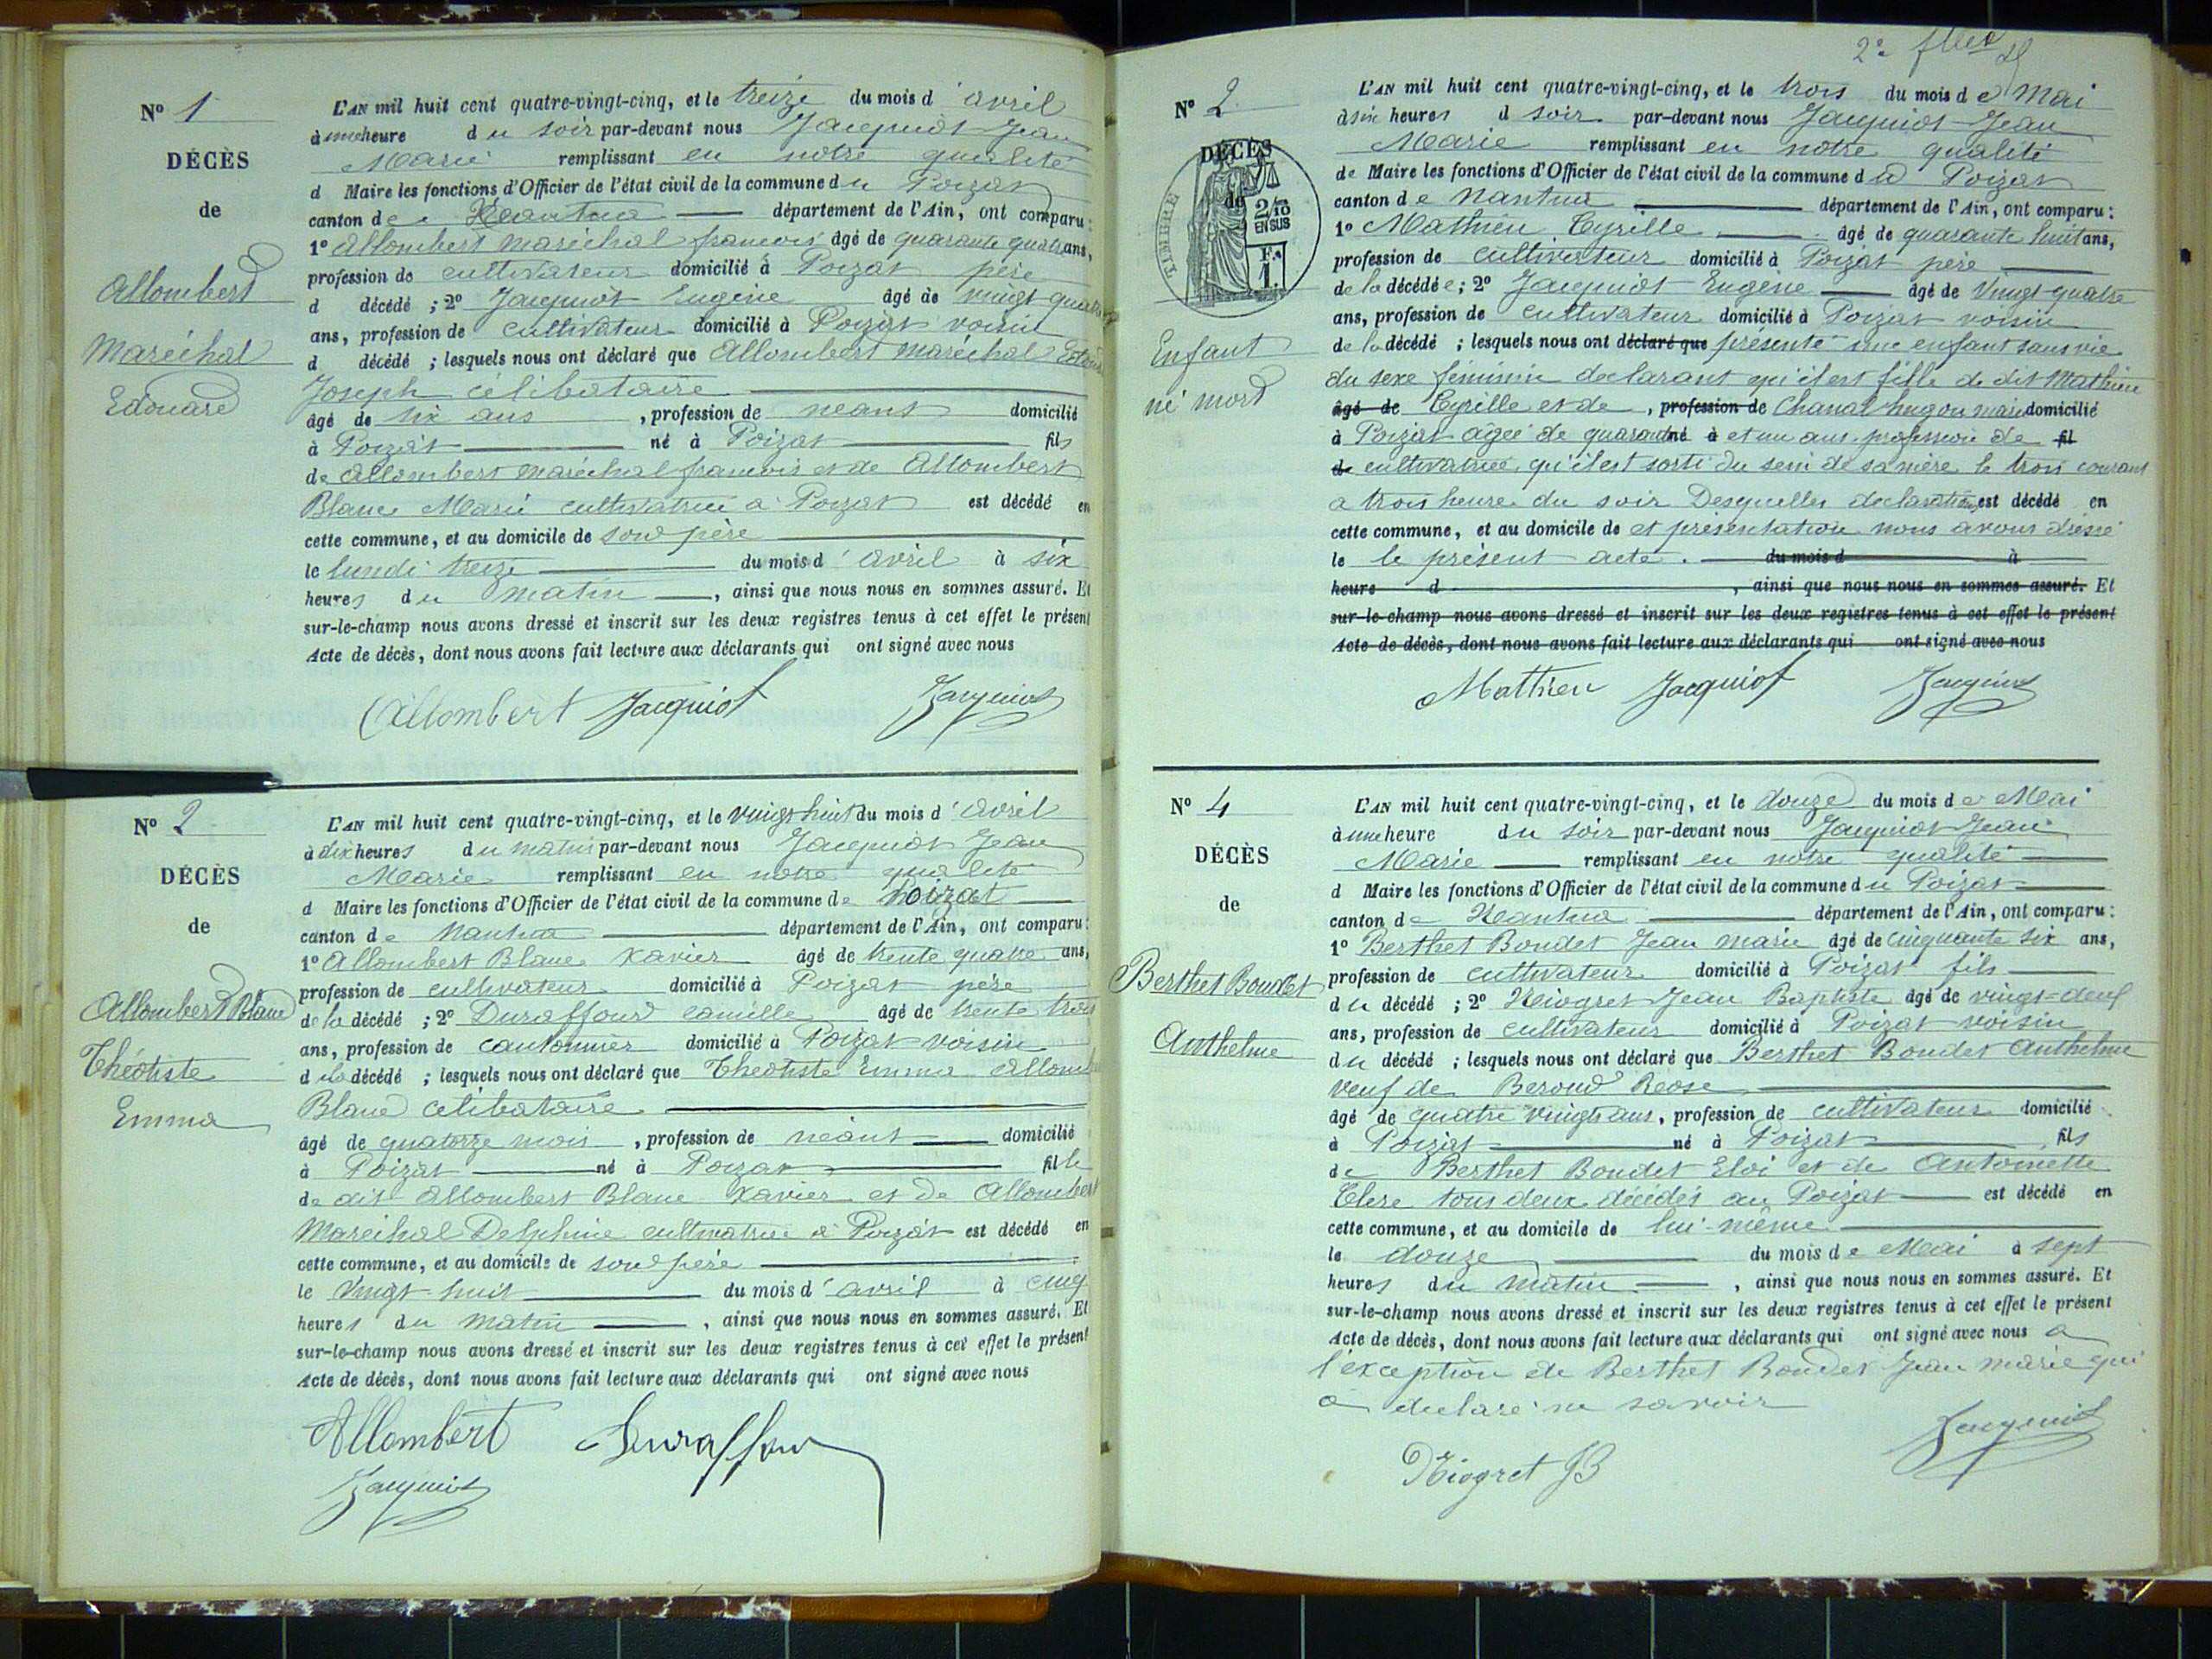 N° 1
DÉCÈS
de
Allombert
Maréchal
Edouard
L'AN mil huit cent quatre-vingt-cinq, et le treize du mois d'avril
à une heure du soir par-devant nous Jacquiot Jean
Marie remplissant en notre qualité
d Maire les fonctions d'Officier de l'état civil de la commune du Poizat
canton de Nantua département de l'Ain, ont comparu :
1° Allombert Maréchal françois âgé de quarante quatre ans,
profession de cultivateur domicilié à Poizat père
d décédé ; 2° Jacquiot Eugène âgé de vingt quatre
ans, profession de cultivateur domicilié à Poizat voisin
d décédé ; lesquels nous ont déclaré que Allombert Maréchal Edouard
Joseph célibataire
âgé de six ans , profession de néant domicilié
à Poizat né à Poizat fils
de Allombert Maréchal françois et de Allombert
Blanc Marie cultivatrice à Poizat est décédé en
cette commune, et au domicile de son père
le lundi treize du mois d'avril à six
heures du matin , ainsi que nous nous en sommes assuré. Et
sur-le-champ nous avons dressé et inscrit sur les deux registres tenus à cet effet le présent
Acte de décès, dont nous avons fait lecture aux déclarants qui ont signé avec nous
Allombert Jacquiot Jacquiot
N° 2
DÉCÈS
de
Allombert Blanc
Théotiste
Emma
L'AN mil huit cent quatre-vingt-cinq, et le vingt huit du mois d'avril
à dix heures du matin par-devant nous Jacquiot Jean
Marie remplissant en notre qualité
d Maire les fonctions d'Officier de l'état civil de la commune de Poizat
canton de Nantua département de l'Ain, ont comparu :
1° Allombert Blanc Xavier âgé de trente quatre ans,
profession de cultivateur domicilié à Poizat père
de la décédé ; 2° Duraffourd camille âgé de trente trois
ans, profession de cantonnier domicilié à Poizat voisin
de la décédé ; lesquels nous ont déclaré que Théotiste Emma Allombert
Blanc célibataire
âgé de quatorze mois , profession de néant domicilié
à Poizat né à Poizat fille
de dit Allombert Blanc Xavier et de Allombert
Maréchal Delphine cultivatrice à Poizat est décédé en
cette commune, et au domicile de son père
le Vingt huit du mois d'avril à cinq
heures du matin , ainsi que nous nous en sommes assuré. Et
sur-le-champ nous avons dressé et inscrit sur les deux registres tenus à cet effet le présent
Acte de décès, dont nous avons fait lecture aux déclarants qui ont signé avec nous
Allombert Duraffour
Jacquiot
2e
N° 2
DÉCÈS
de
TIMBRE
2/10
EN SUS
F.
1.
Enfant
né mort
L'AN mil huit cent quatre-vingt-cinq, et le trois du mois de Mai
à six heures d soir par-devant nous Jacquiot Jean
Marie remplissant en notre qualité
de Maire les fonctions d'Officier de l'état civil de la commune d Poizat
canton de Nantua département de l'Ain, ont comparu :
1° Mathieu Cyrille âgé de quarante huit ans,
profession de cultivateur domicilié à Poizat père
de la décédée ; 2° Jacquiot Eugène âgé de Vingt quatre
ans, profession de cultivateur domicilié à Poizat voisin
de la décédé ; lesquels nous ont déclaré que présenté une enfant sans vie
du sexe féminin declarant qu'il est fille de dit Mathieu
âgé de Cyrille et de , profession de Chanal hugon marie domicilié
à Poizat âgée de quarante né à et un ans profession de fil
de cultivatrice, qu'il est sorti du sein de sa mère le trois courant
a trois heure du soir Desquelles declarations est décédé en
cette commune, et au domicile de et présentation nous avons dressé
le le présent acte. du mois d à
heure d , ainsi que nous nous en sommes assuré. Et
sur-le-champ nous avons dressé et inscrit sur les deux registres tenus à cet effet le présent
Acte de décès, dont nous avons fait lecture aux déclarants qui ont signé avec nous
Mathieu Jacquiot Jacquiot
N° 4
DÉCÈS
de
Berthet Boudet
Anthelme
L'AN mil huit cent quatre-vingt-cinq, et le douze du mois de Mai
à une heure du soir par-devant nous Jacquiot Jean
Marie remplissant en notre qualité
d Maire les fonctions d'Officier de l'état civil de la commune du Poizat
canton de Nantua département de l'Ain, ont comparu :
1° Berthet Boudet Jean marie âgé de cinquante six ans,
profession de cultivateur domicilié à Poizat fils
du décédé ; 2° Niogret Jean Baptiste âgé de vingt-deuf
ans, profession de cultivateur domicilié à Poizat voisin
du décédé ; lesquels nous ont déclaré que Berthet Boudet Anthelme
veuf de Beroud Reose
âgé de quatre vingts ans, profession de cultivateur domicilié
à Poizat né à Poizat fils
de Berthet Boudet Eloi et de Antoinette
Clere tous deux décédés au Poizat est décédé en
cette commune, et au domicile de lui-même
le douze du mois de Mai à sept
heures du matin , ainsi que nous nous en sommes assuré. Et
sur-le-champ nous avons dressé et inscrit sur les deux registres tenus à cet effet le présent
Acte de décès, dont nous avons fait lecture aux déclarants qui ont signé avec nous a
l'exception de Berthet Boudet Jean marie qui
a declaré ne savoir
Jacquiot
Niogret JB